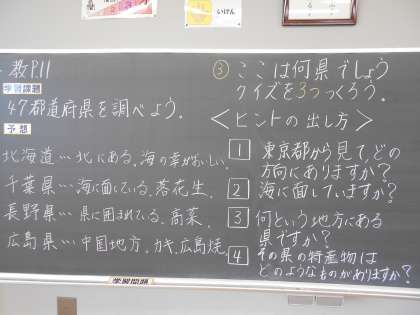 いけん
教P.11
学習課題
47都道府県を調べよう。
予想
北海道…北にある、海の幸がおいしい。
千葉県…海に面している、落花生、
長野県…県に囲まれている、高菜、
広島県…中国地方、カキ、広島焼、
③ ここは何県でしょう
クイズを3つつくろう。
＜ヒントの出し方＞
1 東京都から見て、どの
方向にありますか？
2 海に面していますか？
3 何という地方にある
県ですか？
4 その県の特産物は
どのようなものがありますか？
学習問題